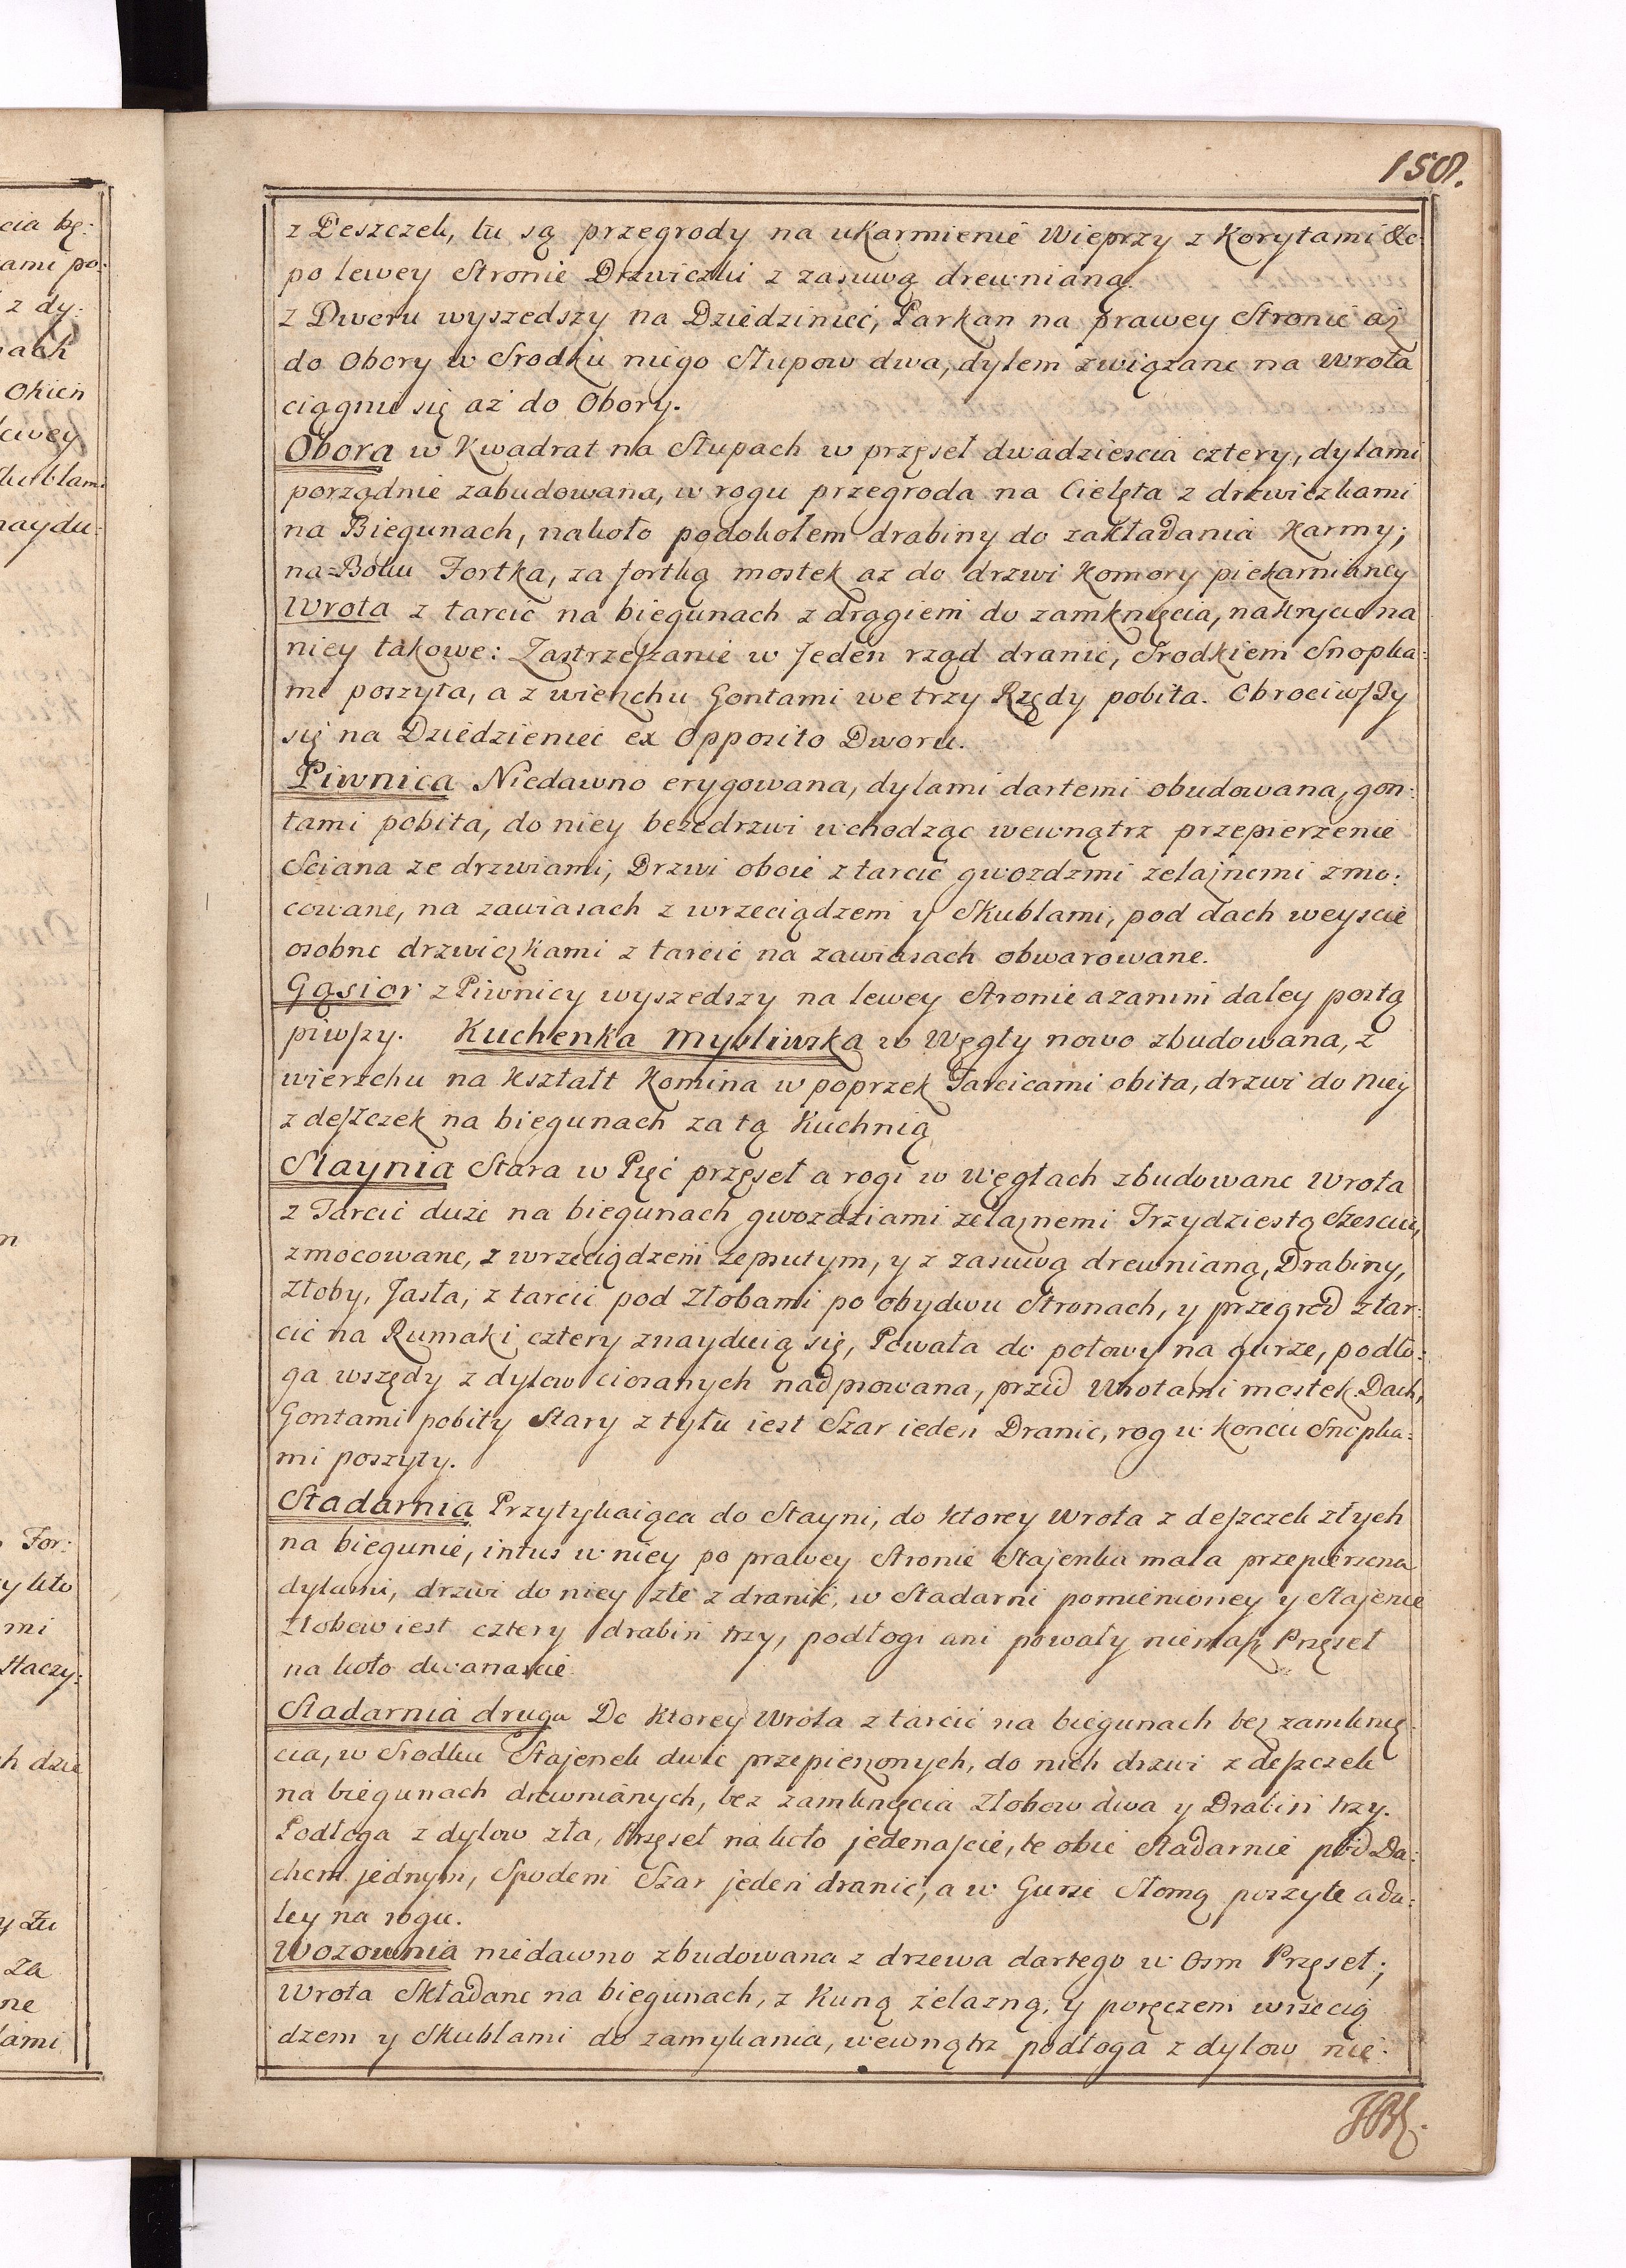 150.
z Deszczek, tu są przegrody na ukarmienie Wieprzy z Korytami &c
po lewey Stronie Drzwiczki z zasuwą drewnianą.
z Dworu wyszedszy na Dziedziniec, Parkan na prawey Stronie aż
do Obory w Srodku niego Słupow dwa, dylem związane na Wrota
ciągnie się aż do Obory.
Obora w Kwadrat na Słupach w przęseł dwadziescia cztery, dylami
porządnie zabudowana, w rogu przegroda na Cielęta z drzwiczkami
na Biegunach, nakoło podokołem drabiny do zakładania Karmy;
na Boku Fortka, za fortką mostek az do drzwi Komory piekarnianey
Wrota z tarcic na biegunach z drągiem do zamknięcia, nakrycie na
niey takowe: Zastrzeszanie w Jeden rząd dranic, Srodkiem Snopka=
mi poszyta, a z wierzchu Gontami we trzy Rzędy pobita. Obrociwszy
się na Dziedzieniec ex Opposito Dworu.
Piwnica Niedawno erygowana, dylami dartemi obudowana, gon:
tami pobita, do niey bezedrzwi wchodząc wewnątrz przepierzenie
Sciana ze drzwiami, Drzwi oboie z tarcic gwozdzmi zelaznemi zmo:
cowane, na zawiasach z wrzeciądzem y Skublami, pod dach weyscie
osobne drzwiczkami z tarcic na zawiasach obwarowane.
Gąsior z Piwnicy wyszedszy na lewey Stronie a zanim daley postą
piwszy. Kuchenka Mysliwska w Węgły nowo zbudowana, z
wierzchu na kształt Komina w poprzek Tarcicami obita, drzwi do niey
z deszczek na biegunach za tą Kuchnią
Staynia Stara w Pięć przęseł a rogi w węgłach zbudowane Wrota
z Tarcic duże na biegunach gwozdziami zelaznemi Trzydziestą Szesciu,
zmocowane, z wrzeciądzem zepsutym, y z zasuwą drewnianą, Drabiny,
Złoby, Jasła, z tarcic pod Złobami po obydwu Stronach, y przegrod z tar:
cic na Rumaki cztery znayduią się, Powała do połowy na gurze, podło:
ga wszędy z dylow ciosanych nadpsowana, przed Wrotami mostek Dach,
Gontami pobity Stary z tyłu iest Szar ieden Dranic, rog w koncu Snopka:
mi poszyty.
Stadarnia Przytykaiąca do Stayni, do ktorey Wrota z deszczek złych
na biegunie, intus w niey po prawey Stronie Stajenka mała przepierzona
dylami, drzwi do niey złe z dranic, w Stadarni pomienioney y Stajence
Złobow iest cztery drabin trzy, podłogi ani powały niemasz Przęseł
na koło dwanascie
Stadarnia druga Do ktorey Wrota z tarcic na biegunach bez zamknię
cia, w Srodku Stajenek dwie przepierzonych, do nich drzwi z deszczek
na biegunach drewnianych, bez zamknięcia Złobow dwa y Drabin trzy.
Podłoga z dylow zła, Przęseł na koło jedenascie, te obie Stadarnie pod Da:
chem jednym, Spodem Szar jeden dranic, a w Gurze Słomą poszyte a da:
ley na rogu.
Wozownia niedawno zbudowana z drzewa dartego w Osm Przęseł;
Wrota Składane na biegunach, z Kuną żelazną, y poręczem wrzecią
dzem y Skublami do zamykania, wewnątrz podłoga z dylow nie: